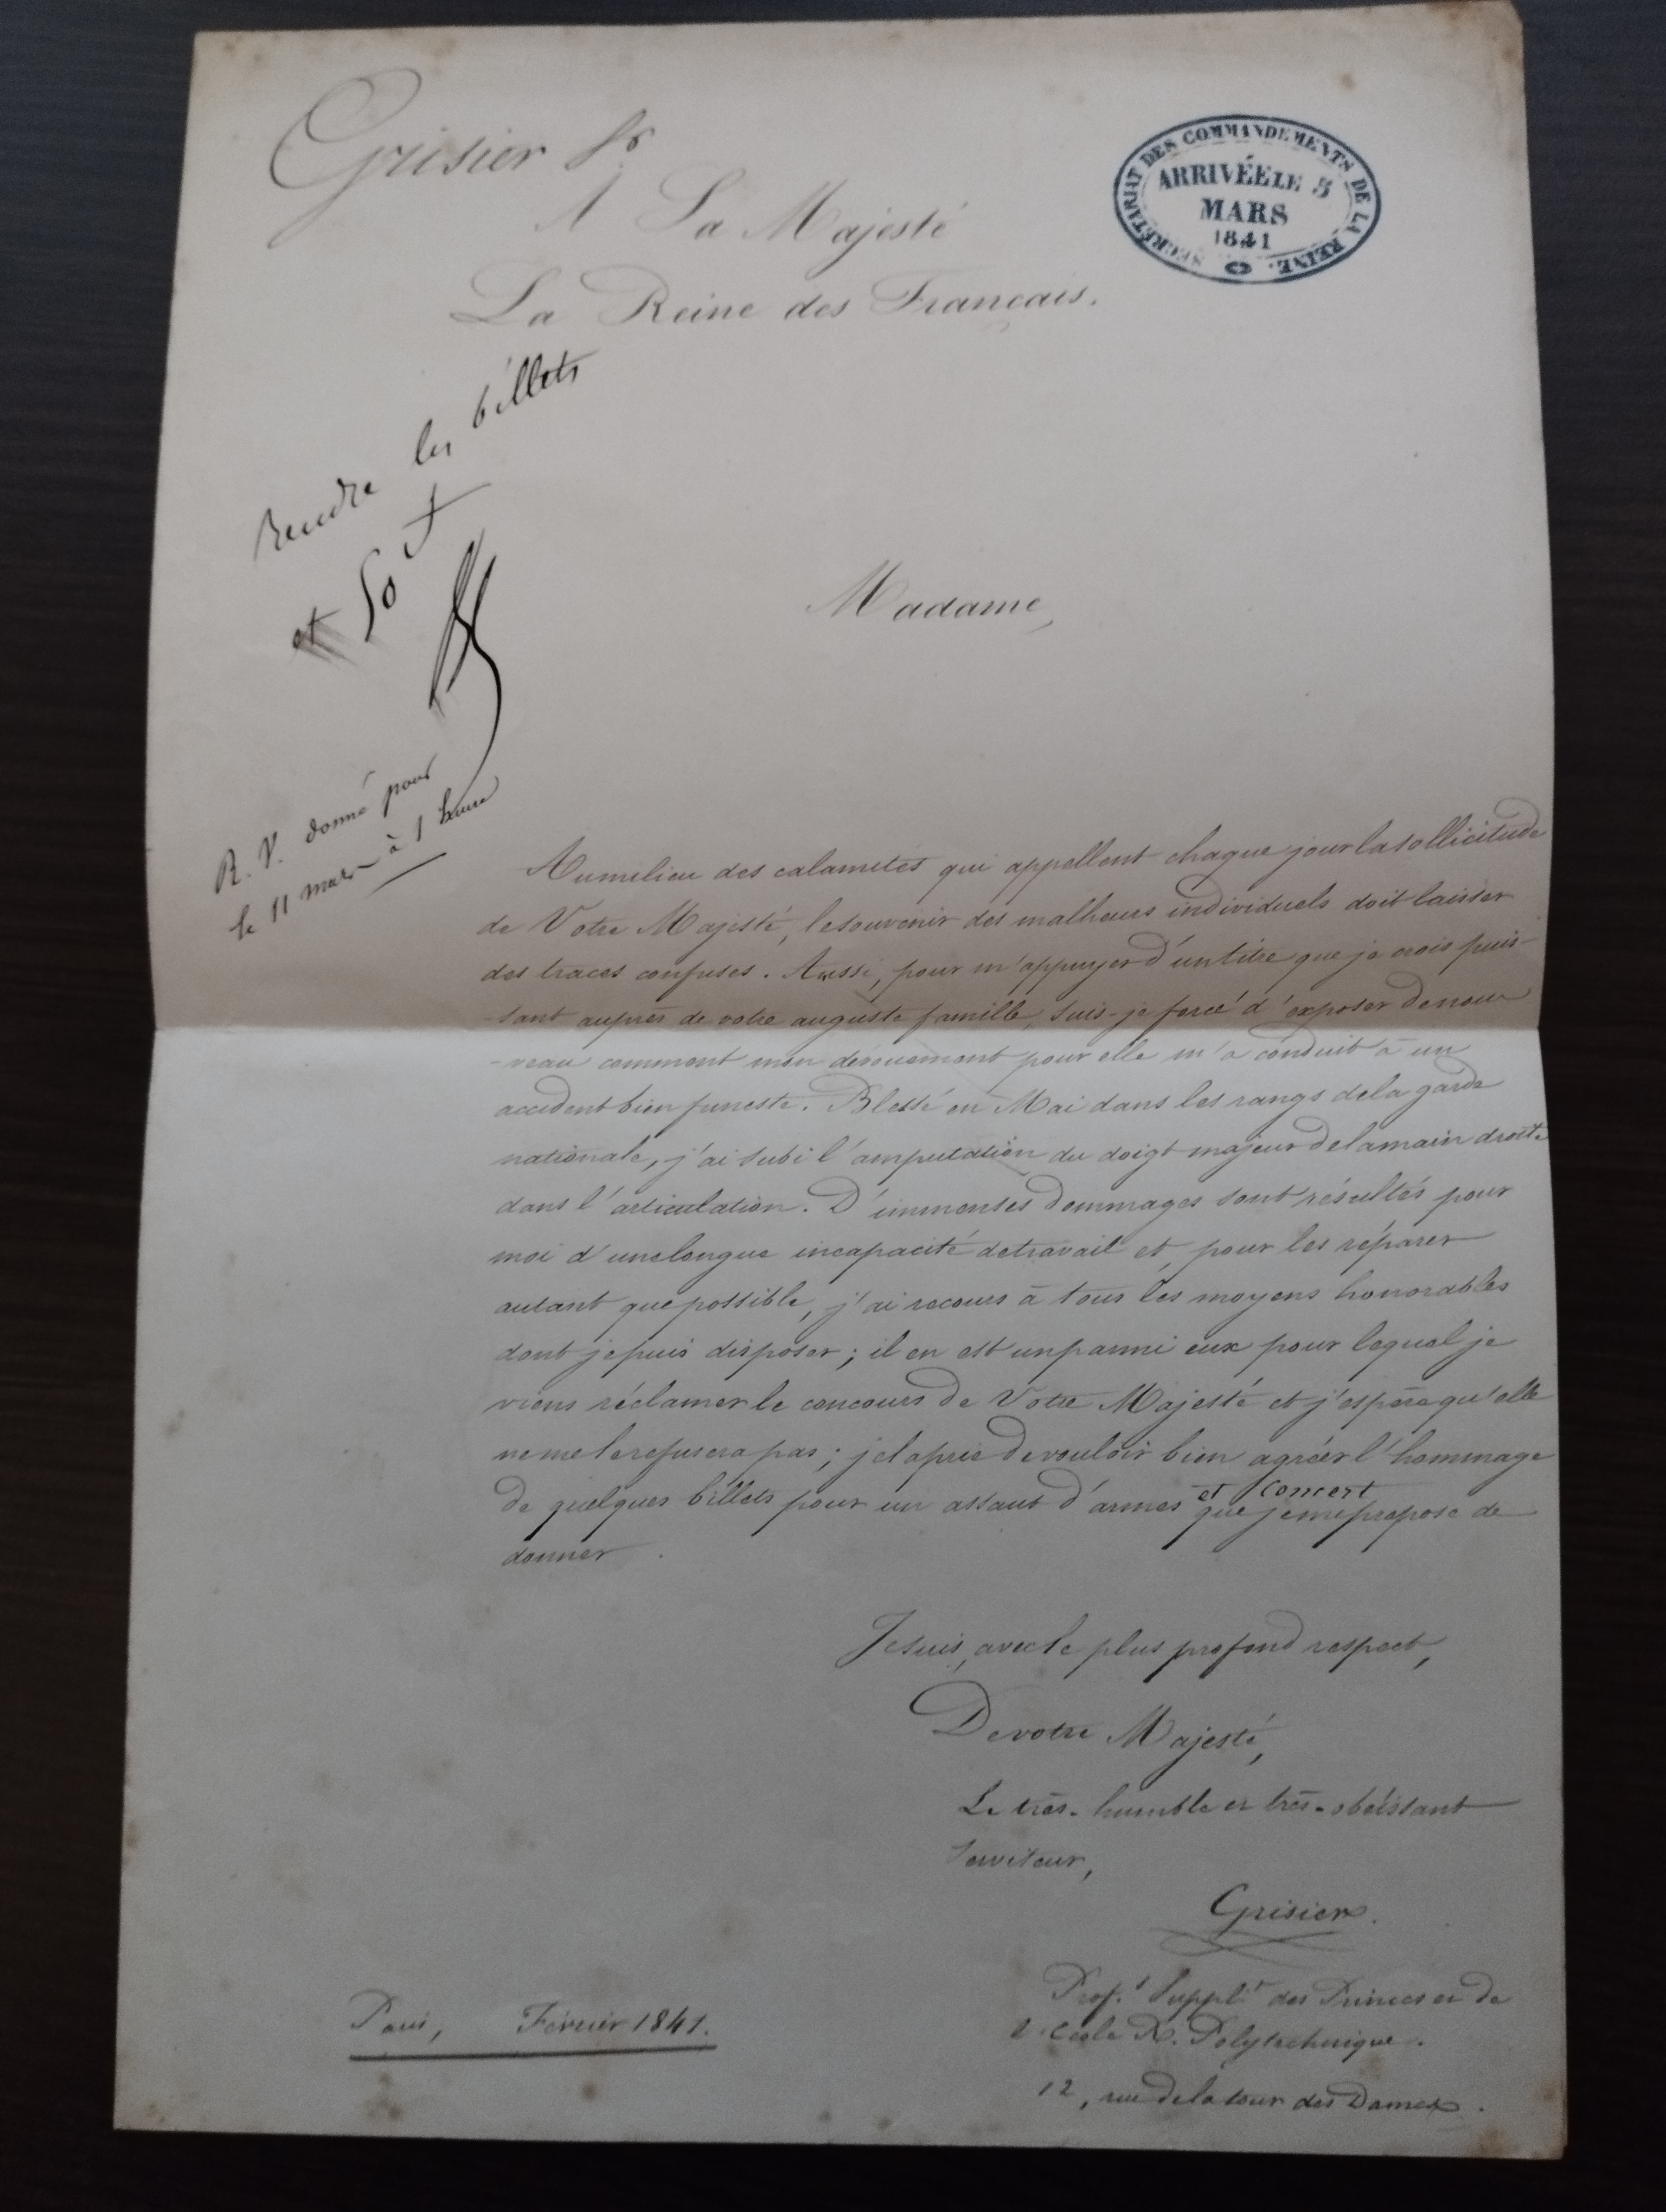 Grisier Pr
SECRÉTARIAT DES COMMANDEMENTS DE LA REINE.
ARRIVÉE LE 5
MARS
1841
A Sa Majesté
La Reine des Français.
Rendre les billets
et 50 f
R. V. donné pour
le 11 mars à 1 heure
Madame,
Au milieu des calamités qui appellent chaque jour la sollicitude
de Votre Majesté, le souvenir des malheurs individuels doit laisser
des traces confuses. Aussi, pour m'appuyer d'un titre que je crois puis-
-sant auprès de votre auguste famille, suis-je forcé d'exposer de nou
-veau comment mon dévouement pour elle m'a conduit à un
accident bien funeste. Blessé en Mai dans les rangs de la garde
nationale, j'ai subi l'amputation du doigt majeur de la main droite
dans l'articulation. D'immenses dommages sont résultés pour
moi d'une longue incapacité de travail et, pour les réparer
autant que possible, j'ai recours à tous les moyens honorables
dont je puis disposer; il en est un parmi eux pour lequel je
viens réclamer le concours de Votre Majesté et j'espère qu'elle
ne me le refusera pas; je la prie de vouloir bien agréer l'hommage
de quelques billets pour un assaut d'armes et Concert que je me propose de
donner.
Je suis, avec le plus profond respect,
De votre Majesté,
Le très-humble et très-obéissant
Serviteur,
Grisier.
Profr Supplt des Princes et de
l'école R. Polytechnique.
12, rue de la tour des Dames.
Paris, Février 1841.